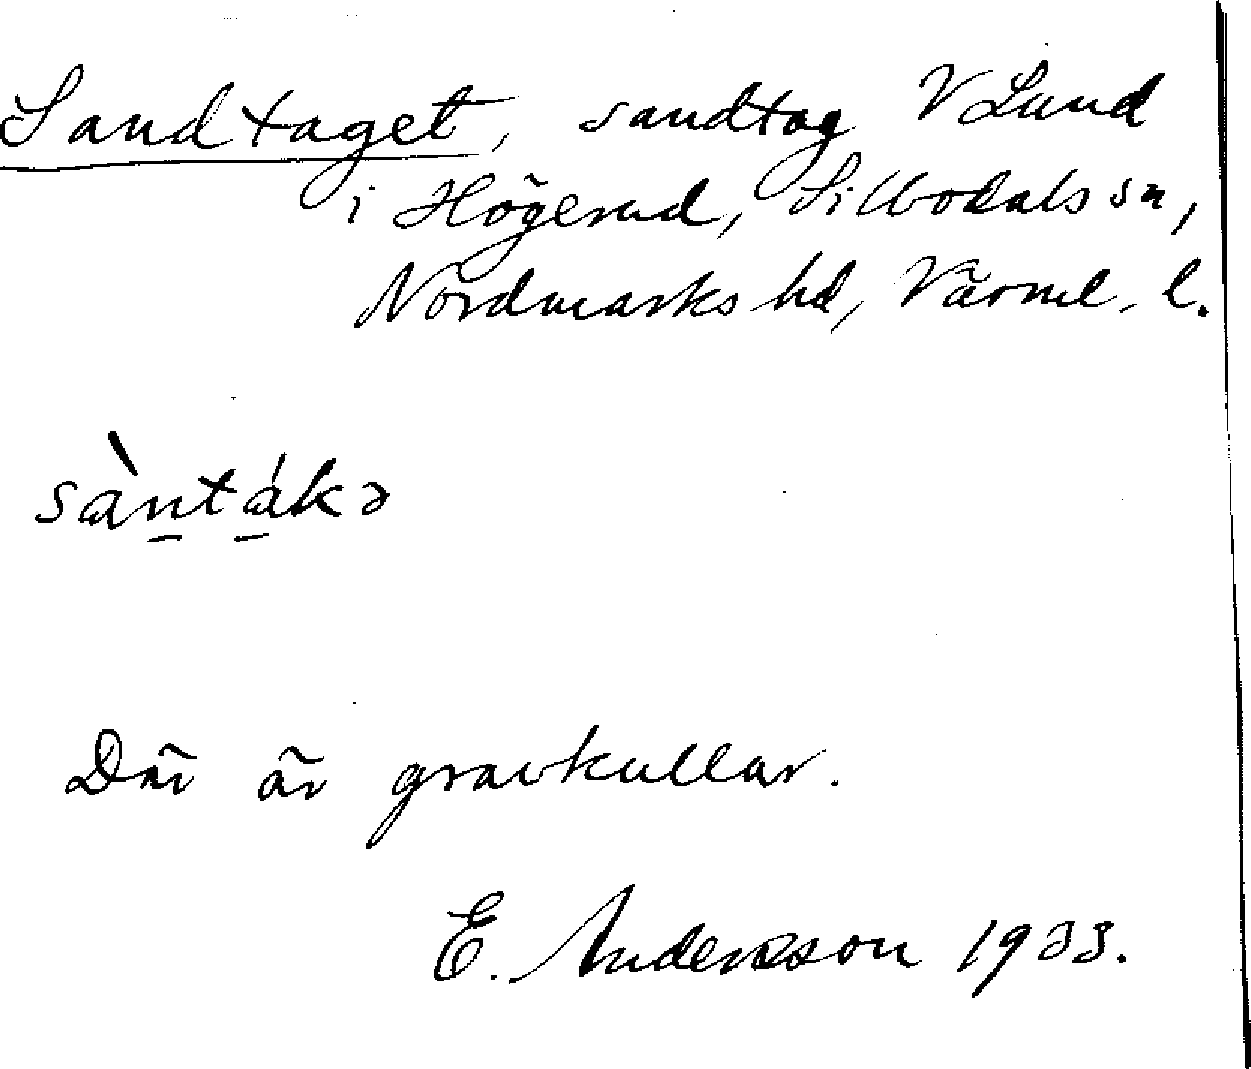 Sandtaget, sandtag V Lund
i Högerud, Silbodals sn,
Nordmarks hd, Värml. l.
sàntákə
Där är gravkullar.
E. Andersson 1933.